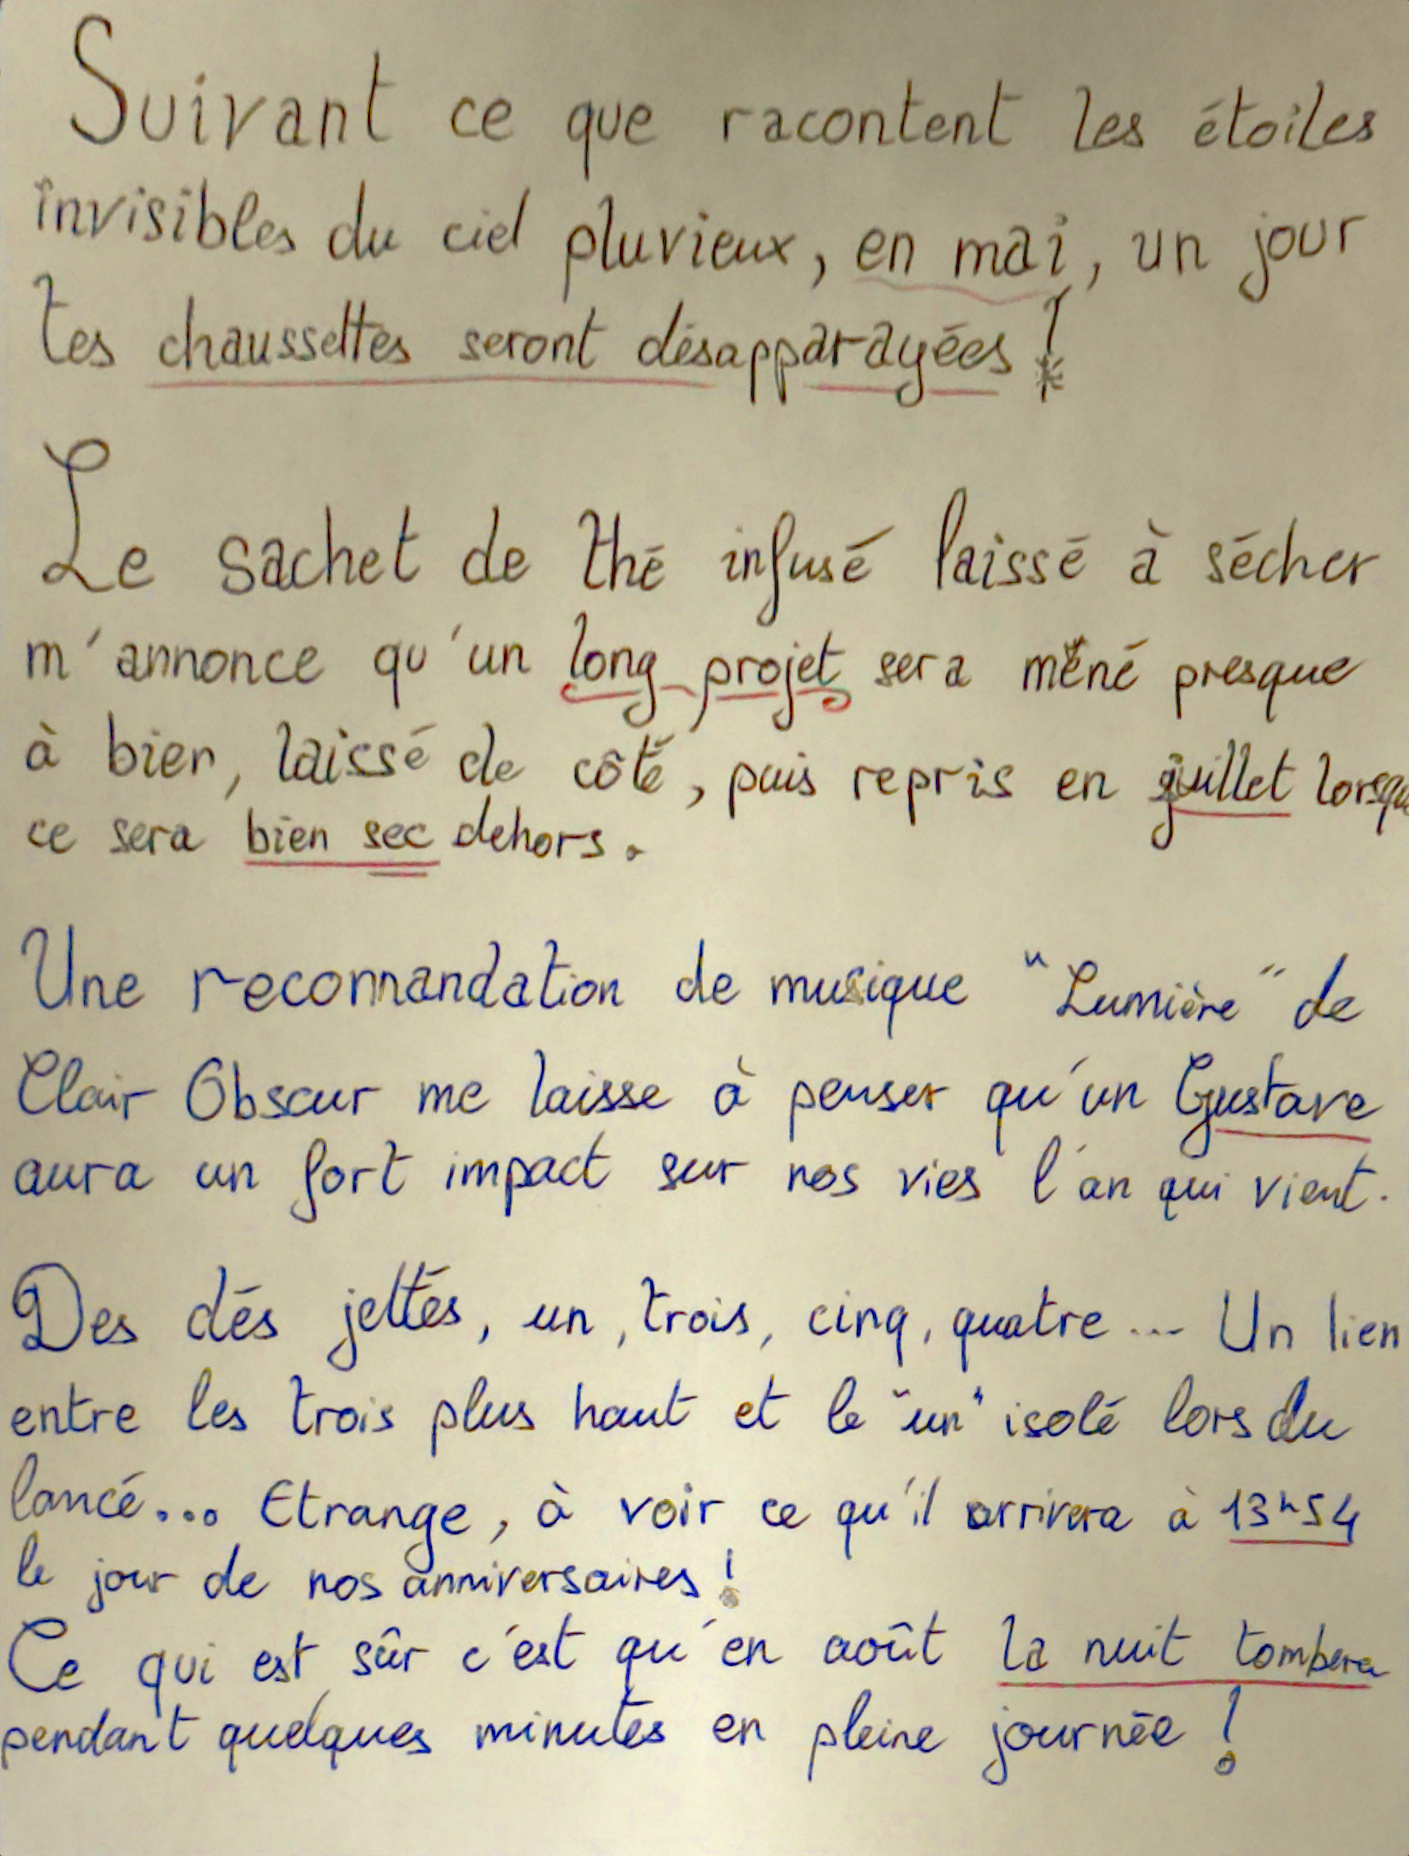 Suivant ce que racontent les étoiles
invisibles du ciel pluvieux, en mai, un jour
tes chaussettes seront désapparayées !
Le sachet de thé infusé laissé à sécher
m'annonce qu'un long projet sera mené presque
à bien, laissé de côté, puis repris en juillet lorsqu
ce sera bien sec dehors.
Une recommandation de musique "Lumière" de
Clair Obscur me laisse à penser qu'un Gustave
aura un fort impact sur nos vies l'an qui vient.
Des dés jettés, un, trois, cinq, quatre... Un lien
entre les trois plus haut et le "un" isolé lors du
lancé... Etrange, à voir ce qu'il arrivera à 13h54
le jour de nos anniversaires !
Ce qui est sûr c'est qu'en août la nuit tombera
pendant quelques minutes en pleine journée !